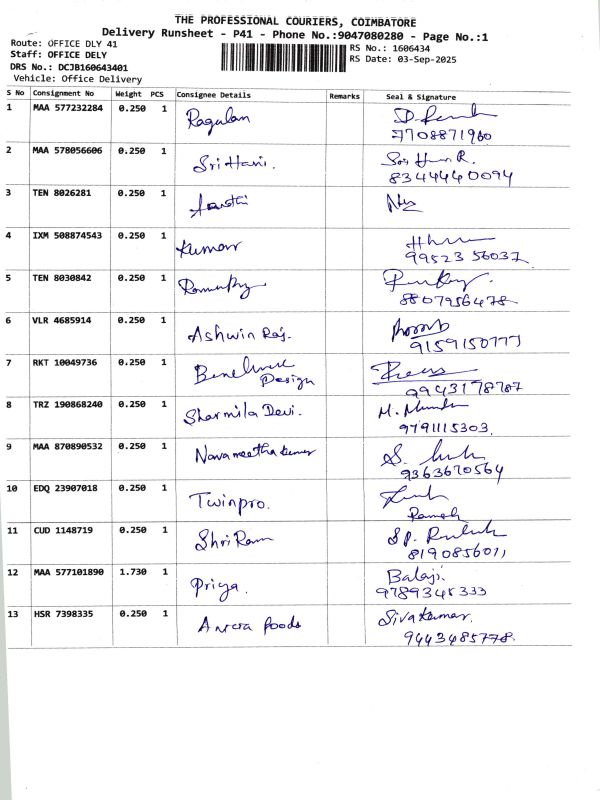 THE PROFESSIONAL COURIERS, COIMBATORE
Delivery Runsheet - P41 - Phone No.:9047080280 - Page No.:1
Route: OFFICE DLY 41
Staff: OFFICE DELY
DRS No.: DCJB160643401
Vehicle: Office Delivery
RS No.: 1606434
RS Date: 03-Sep-2025
S No Consignment No Weight PCS Consignee Details Remarks Seal & Signature
1 MAA 577232284 0.250 1 Ragulan
7708871960
2 MAA 578056606 0.250 1 Sri Hari. Sri Hari R.
8344440094
3 TEN 8026281 0.250 1
4 IXM 508874543 0.250 1 Kumar
99523 56037
5 TEN 8030842 0.250 1
8807956478
6 VLR 4685914 0.250 1 Ashwin Raj.
9159150777
7 RKT 10049736 0.250 1 Design
9943178787
8 TRZ 190868240 0.250 1 Sharmila Devi.
9791115303.
9 MAA 870890532 0.250 1 Navaneetha kumar
9363670564
10 EDQ 23907018 0.250 1 Twinpro.
Ramesh
11 CUD 1148719 0.250 1 Shri Ram SP.
8190856011
12 MAA 577101890 1.730 1 Priya. Balaji.
9789345333
13 HSR 7398335 0.250 1 foods Sivakumar.
9443485778.